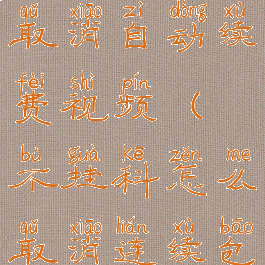 qǔ xiāo zì dòng xù
取消自动续
fèi shì pín
费视频（
bú guà kē zěn me
不挂科怎么
qǔ xiāo lián xù bāo
取消连续包